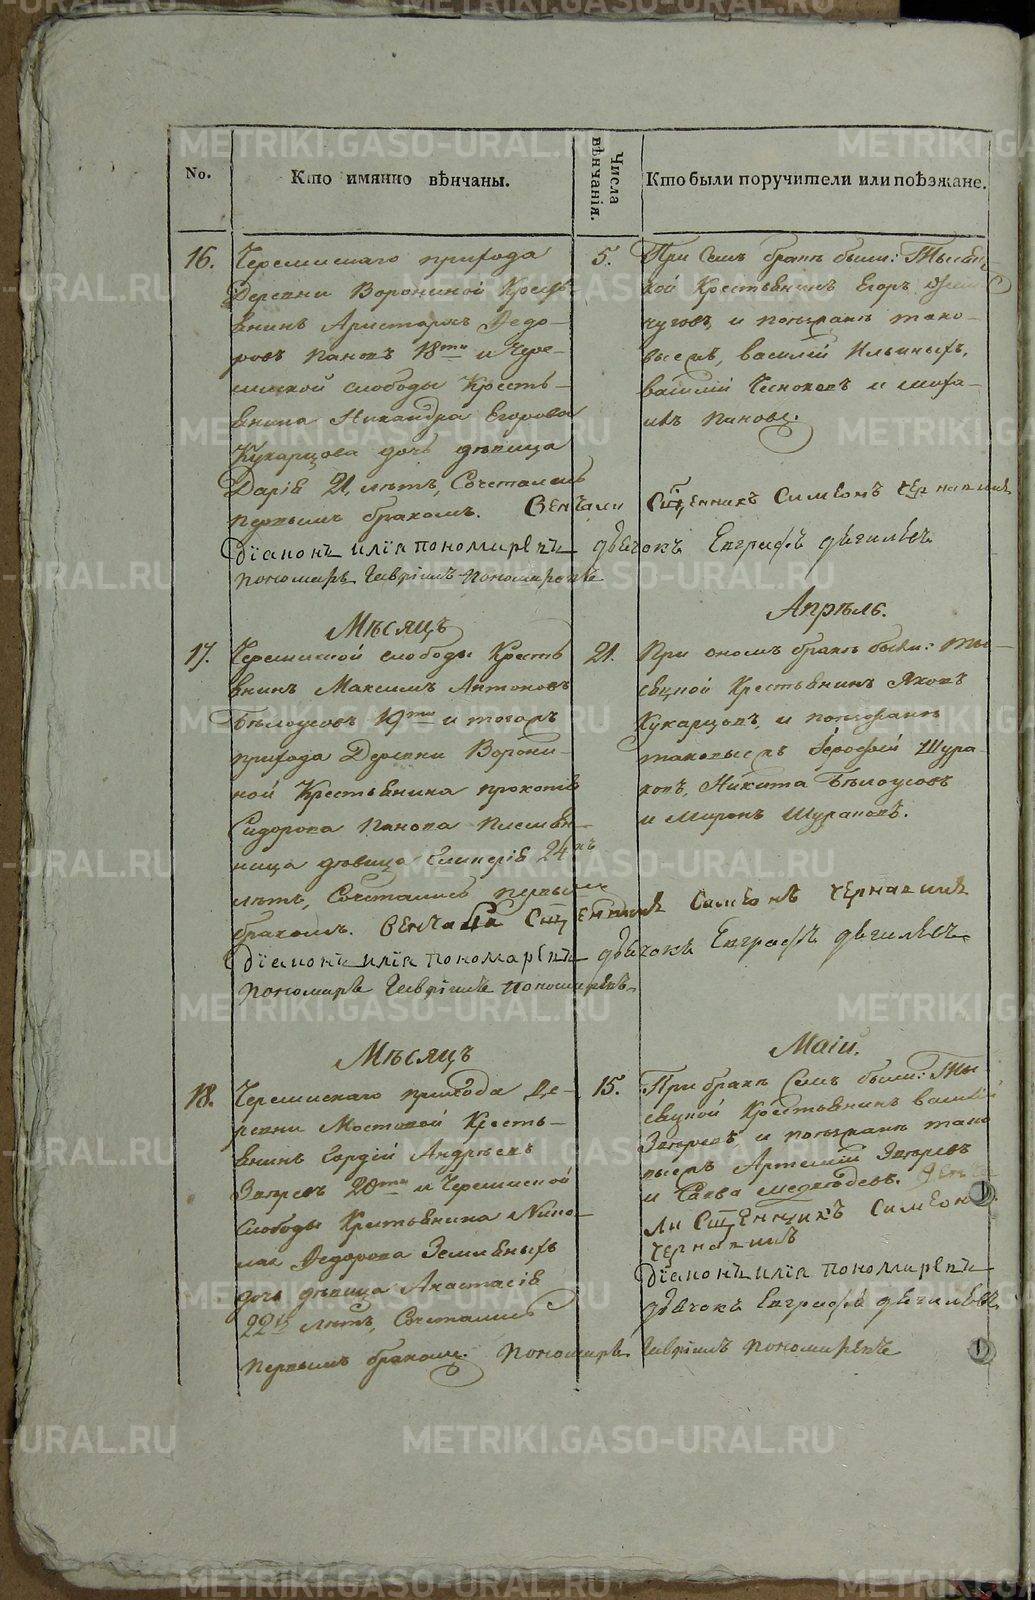 No.
Кто имянно вѣнчаны.
Числа вѣнчанія.
Кто были поручители или поѣзжане.
16.
Черемискаго прихода
Деревни Ворониной Кресть-
янинъ Аристархъ Ѳедо-
ровъ Пановъ 18ти и Чере-
миской слободы Кресть-
янина Никандра Егорова
Кукарцова дочь дѣвица
Дарія 21, лѣтъ, Сочетались
первымъ бракомъ.
5.
При Семъ бракѣ были: Тысяц-
кой Крестьянинъ Егоръ
и поѣзжанѣ тако-
выежъ, василій Ильиныхъ,
василій Чесноковъ и
Пановъ.
Венчали Сщенникъ Симеонъ Чернавинъ
Діаконъ илія пономаревъ дьячокъ Евграфъ дягилевъ
пономарь Гавріилъ пономаревъ
Мѣсяцъ Апрѣль.
17.
Черемиской слободы Кресть
янинъ Максимъ Антоновъ
Бѣлоусовъ 19ти и тогожъ
прихода Деревни Ворони-
ной Крестьянина прокопія
Сидорова Панова Племян-
ница дѣвица Гликерія 24хъ
лѣтъ, Сочетались первымъ
бракомъ.
21.
При ономъ бракѣ были: ты-
сяцкой Крестьянинъ Яковъ
Кукарцовъ, и поѣзжанѣ
таковыежъ Ерофей Шура-
ковъ, Никита Бѣлоусовъ
и Миронъ Шураковъ.
венчали Сщенникъ Симеонъ Чернавинъ
Діаконъ илія пономаревъ дьячокъ Евграфъ дягилевъ
пономарь Гавріилъ пономаревъ
Мѣсяцъ Маіи.
18.
Черемискаго прихода Де-
ревни Мостовой Кресть-
янинъ Гордій Андрѣевъ
Звѣревъ 20ти и Черемиской
Слободы Крестьянина Нико-
лая Ѳедорова Земляныхъ
дочь дѣвица Анастасія
22хъ лѣтъ, Сочетались
первымъ бракомъ.
15.
При бракѣ Семъ были: Ты
сяцкой Крестьянинъ василій
Звѣревъ, и поѣзжанѣ тако
выежъ Артемій Звѣревъ
и Савва медвѣдевъ. Венча
ли Сщенникъ Симеонъ
Чернавинъ
Діаконъ илія пономаревъ
дьячокъ Евграфъ дягилевъ
пономарь Гавріилъ пономаревъ
METRIKI.GASO-URAL.RU